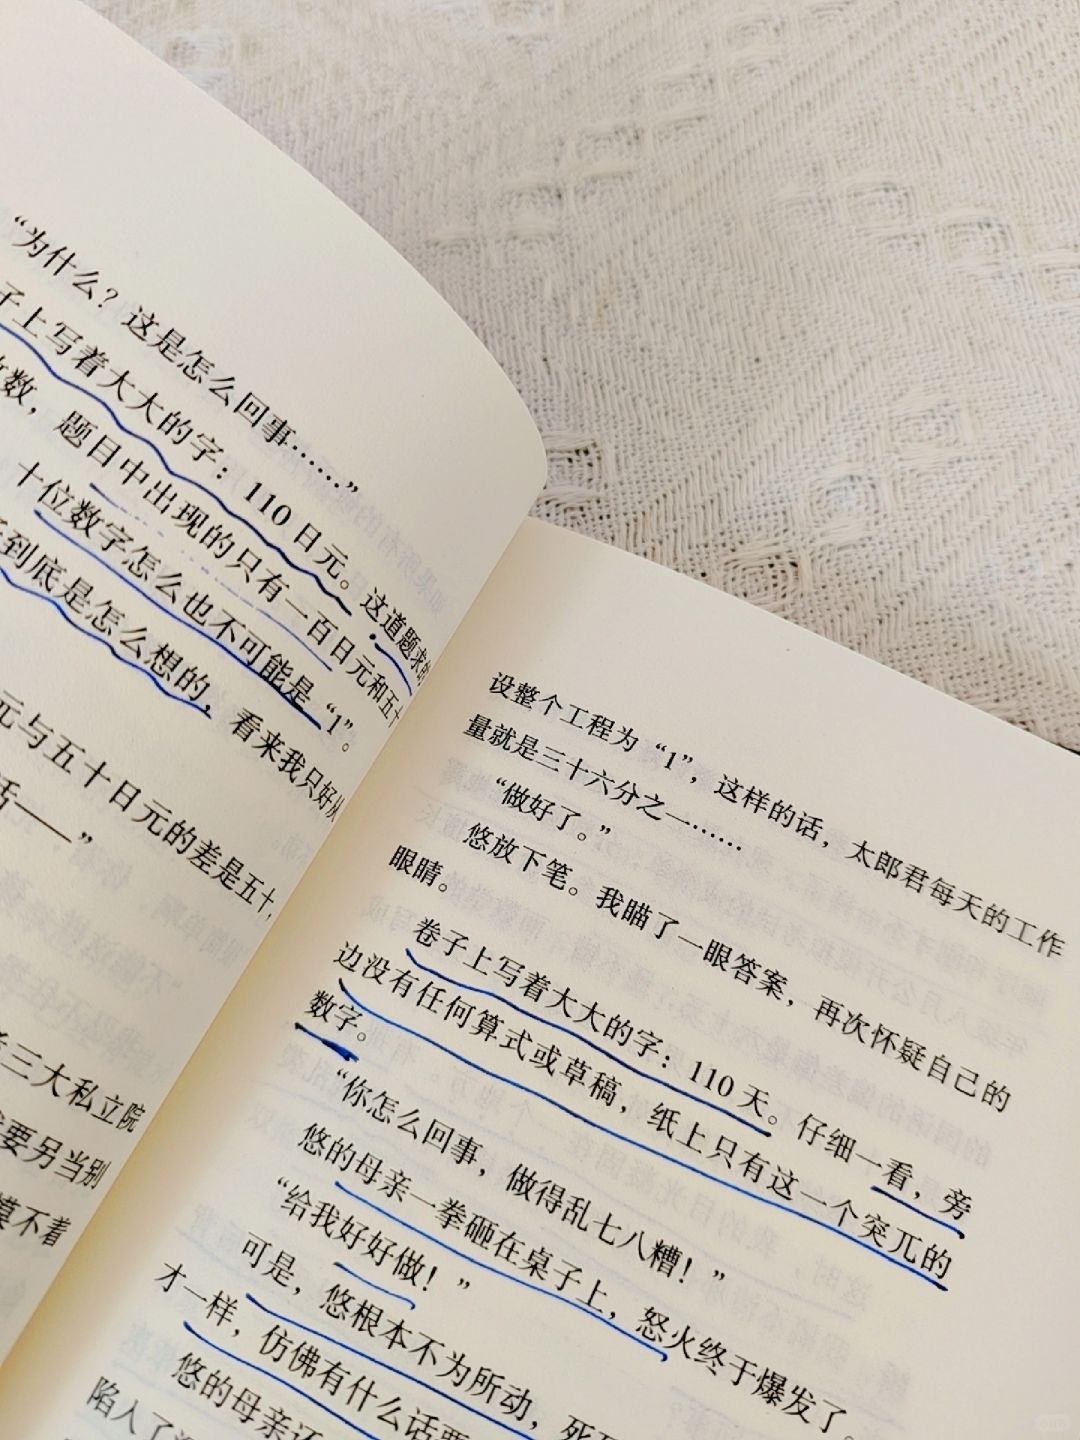 “为什么？这是怎么回事……”
子上写着大大的字：110日元。这道题求的
数，题目中出现的只有一百日元和五十
十位数字怎么也不可能是“1”。
到底是怎么想的，看来我只好从
元与五十日元的差是五十，
话——”
三大私立院
要另当别
摸不着
设整个工程为“1”，这样的话，太郎君每天的工作
量就是三十六分之一……
“做好了。”
悠放下笔。我瞄了一眼答案，再次怀疑自己的
眼睛。
卷子上写着大大的字：110天。仔细一看，旁
边没有任何算式或草稿，纸上只有这一个突兀的
数字。
“你怎么回事，做得乱七八糟！”
悠的母亲一拳砸在桌子上，怒火终于爆发了。
“给我好好做！”
可是，悠根本不为所动，死
才一样，仿佛有什么话要
悠的母亲还
陷入了